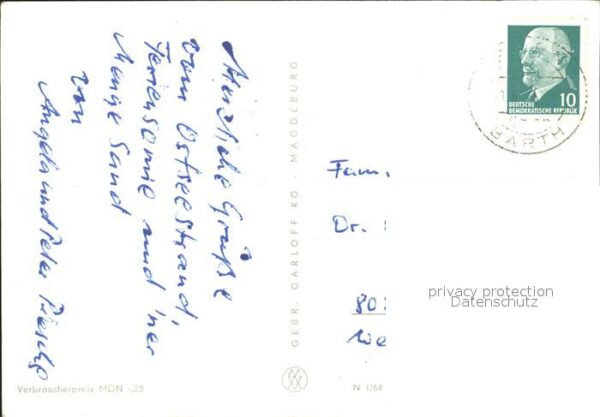 Herzliche Grüße
vom Ostseestrand,
Feriensonne und 'ner
Menge Sand
von
Angela und Peter
GEBR. GARLOFF KG · MAGDEBURG
DEUTSCHE
DEMOKRATISCHE REPUBLIK
10
BARTH
Fam.
Dr.
80
We
privacy protection
Datenschutz
Verbraucherpreis MDN -,20
N 1/64